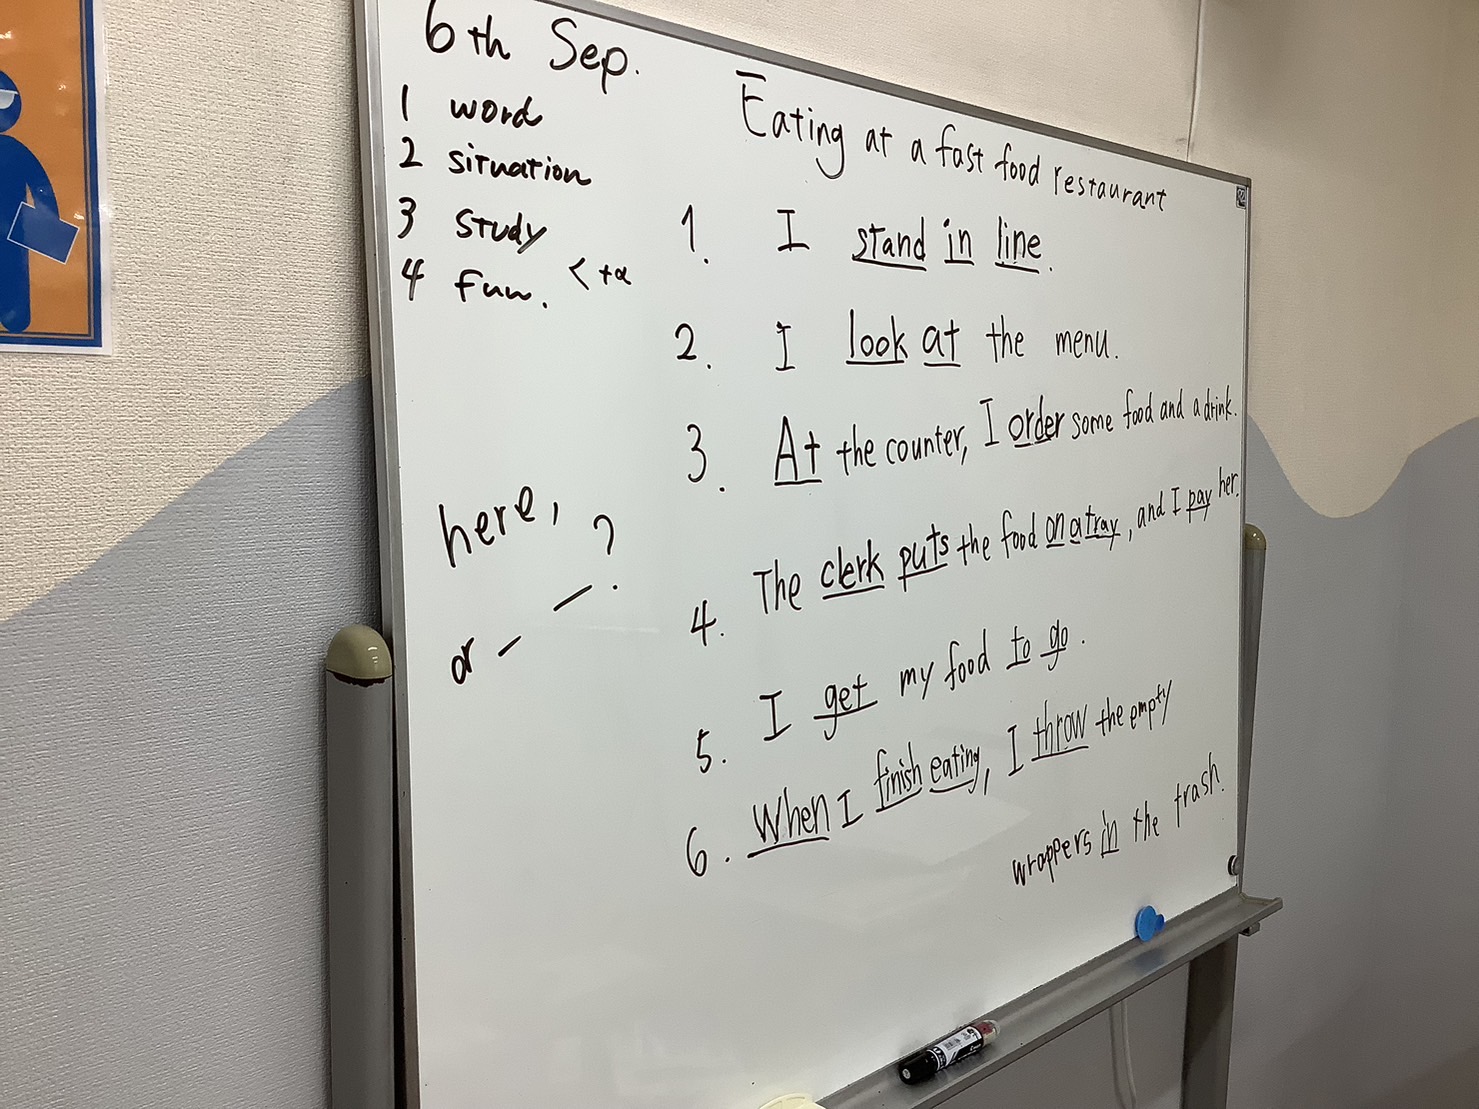 6th Sep.
1 word
2 situation
3 study
4 fun. < +α
here,
or — — ?
Eating at a fast food restaurant
1. I stand in line.
2. I look at the menu.
3. At the counter, I order some food and a drink.
4. The clerk puts the food on a tray, and I pay her.
5. I get my food to go.
6. When I finish eating, I throw the empty
wrappers in the trash.